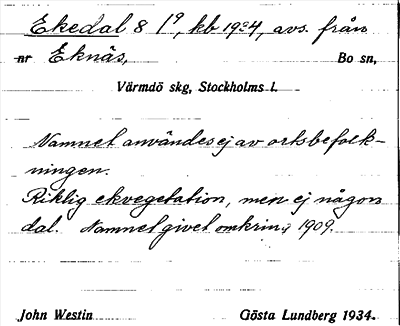 Ekedal 8 1⁹, kb 1924, avs. från
nr Eknäs, Bo sn,
Värmdö skg, Stockholms l.
Namnet användes ej av ortsbefolk-
ningen.
Riklig ekvegetation, men ej någon
dal. Namnet givet omkring 1909.
John Westin Gösta Lundberg 1934.